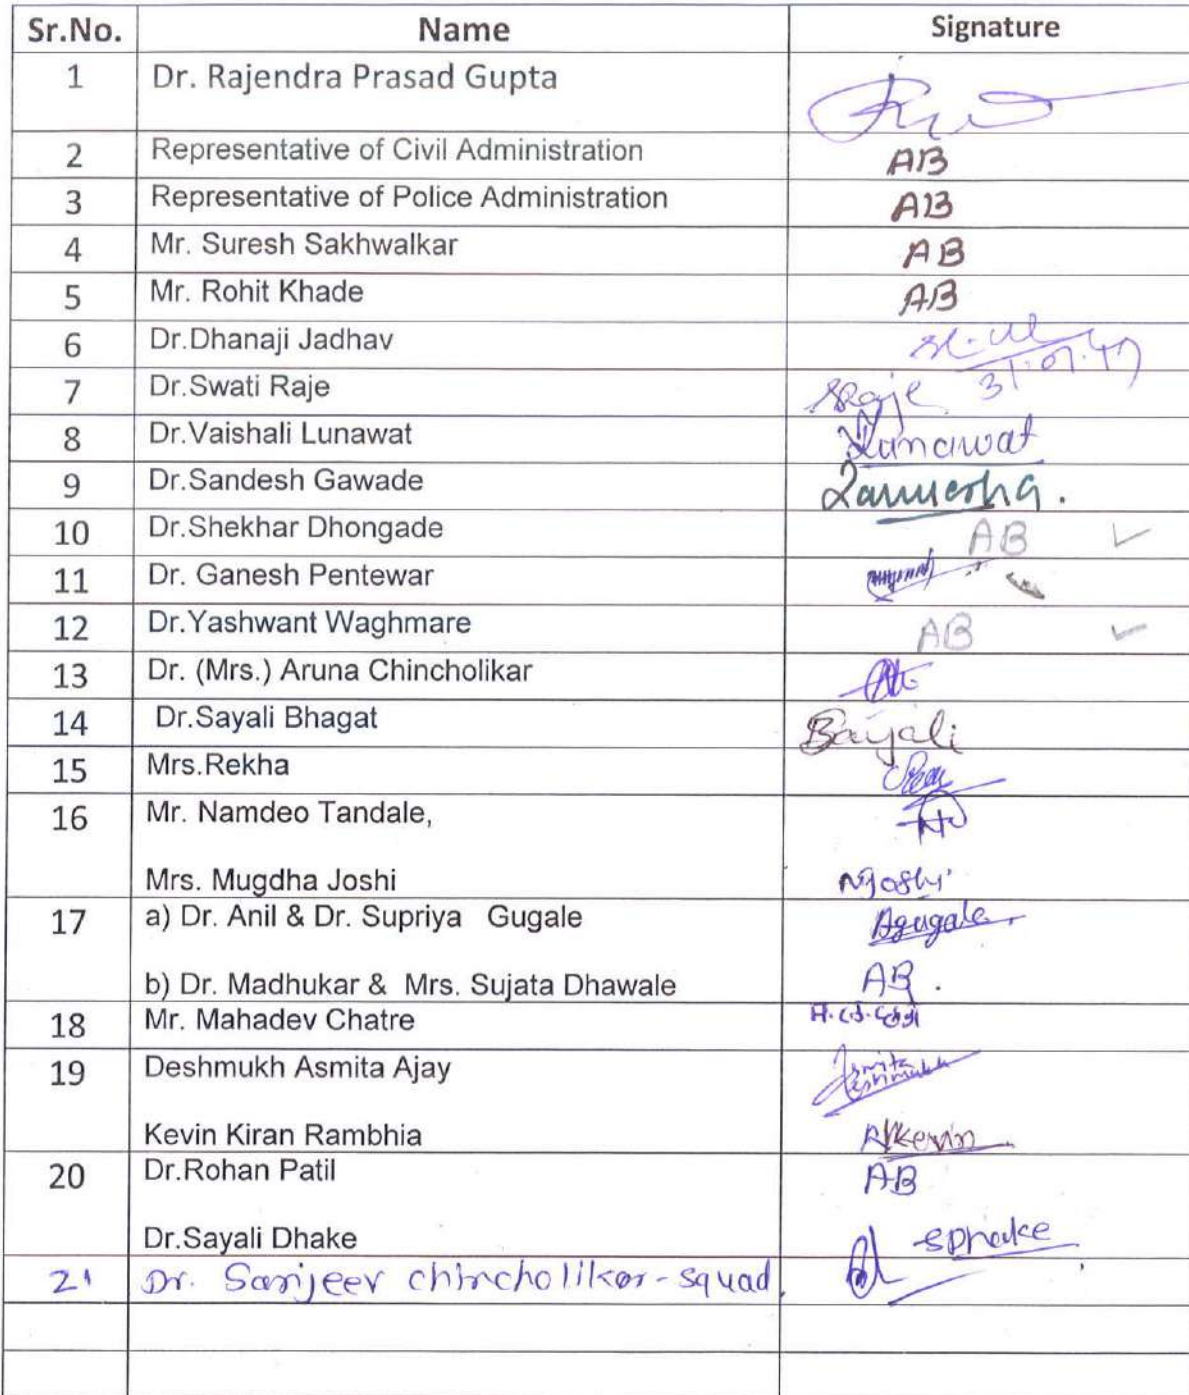 Sr.No. Name Signature
1 Dr. Rajendra Prasad Gupta
2 Representative of Civil Administration AB
3 Representative of Police Administration AB
4 Mr. Suresh Sakhwalkar AB
5 Mr. Rohit Khade AB
6 Dr.Dhanaji Jadhav
7 Dr.Swati Raje SRaje
8 Dr.Vaishali Lunawat Lunawat
9 Dr.Sandesh Gawade
10 Dr.Shekhar Dhongade AB ✓
11 Dr. Ganesh Pentewar
12 Dr.Yashwant Waghmare AB ✓
13 Dr. (Mrs.) Aruna Chincholikar
14 Dr.Sayali Bhagat
15 Mrs.Rekha
16 Mr. Namdeo Tandale,
Mrs. Mugdha Joshi
17 a) Dr. Anil & Dr. Supriya Gugale Agugale
b) Dr. Madhukar & Mrs. Sujata Dhawale AB .
18 Mr. Mahadev Chatre
19 Deshmukh Asmita Ajay
Kevin Kiran Rambhia
20 Dr.Rohan Patil AB
Dr.Sayali Dhake SDhake
21 Dr. Sanjeev Chincholikar-squad